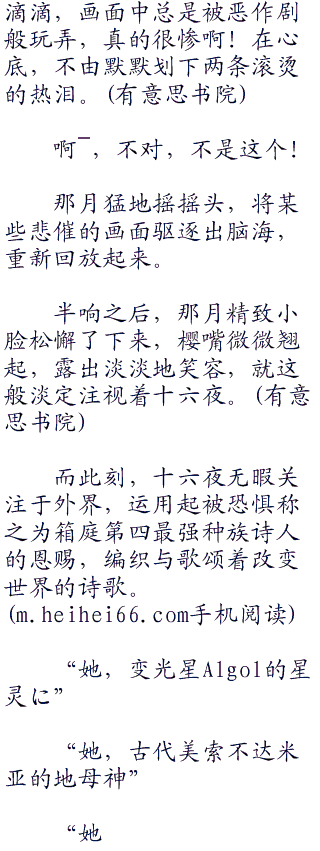 滴滴，画面中总是被恶作剧
般玩弄，真的很惨啊！在心
底，不由默默划下两条滚烫
的热泪。(有意思书院)
啊¯，不对，不是这个！
那月猛地摇摇头，将某
些悲催的画面驱逐出脑海，
重新回放起来。
半响之后，那月精致小
脸松懈了下来，樱嘴微微翘
起，露出淡淡地笑容，就这
般淡定注视着十六夜。(有意
思书院)
而此刻，十六夜无暇关
注于外界，运用起被恐惧称
之为箱庭第四最强种族诗人
的恩赐，编织与歌颂着改变
世界的诗歌。
(m.heihei66.com手机阅读)
“她，变光星Algol的星
灵に”
“她，古代美索不达米
亚的地母神”
“她